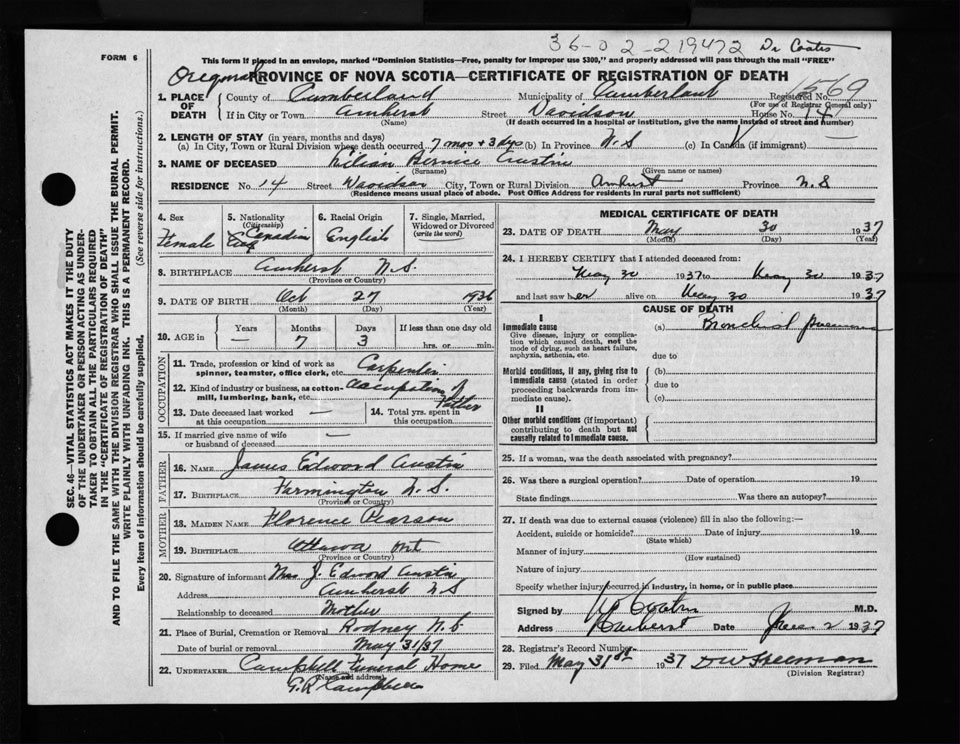 36-02-219472 Dr Coates
FORM 6
This form if placed in an envelope, marked "Dominion Statistics—Free, penalty for improper use $300," and properly addressed will pass through the mail "FREE"
Original PROVINCE OF NOVA SCOTIA—CERTIFICATE OF REGISTRATION OF DEATH
1. PLACE OF DEATH County of Cumberland Municipality of Cumberland Registered No. 1569
(For use of Registrar General only)
If in City or Town Amherst Street Davidson House No. 14
(Name) (If death occurred in a hospital or institution, give the name instead of street and number)
2. LENGTH OF STAY (in years, months and days)
(a) In City, Town or Rural Division where death occurred 7 mos + 3 dys (b) In Province N.S (c) In Canada (if immigrant) —
3. NAME OF DECEASED Lilian Bernice Austin
(Surname) (Given name or names)
RESIDENCE No. 14 Street Davidson City, Town or Rural Division Amherst Province N.S
(Residence means usual place of abode. Post Office Address for residents in rural parts not sufficient)
4. Sex Female
5. Nationality (Citizenship) Canadian
6. Racial Origin English
7. Single, Married, Widowed or Divorced (write the word)
8. BIRTHPLACE Amherst N.S.
(Province or Country)
9. DATE OF BIRTH Oct 27 1936
(Month) (Day) (Year)
10. AGE in Years — Months 7 Days 3 If less than one day old hrs. or min.
OCCUPATION
11. Trade, profession or kind of work as spinner, teamster, office clerk, etc. Carpenter
12. Kind of industry or business, as cotton-mill, lumbering, bank, etc. Occupation of Father
13. Date deceased last worked at this occupation —
14. Total yrs. spent in this occupation
15. If married give name of wife or husband of deceased —
FATHER
16. NAME James Edward Austin
17. BIRTHPLACE Farmington N.S.
(Province or Country)
MOTHER
18. MAIDEN NAME Florence Pearson
19. BIRTHPLACE Ottawa Ont
(Province or Country)
20. Signature of informant Mrs J. Edward Austin
Address Amherst N S
Relationship to deceased Mother
21. Place of Burial, Cremation or Removal Rodney N.S.
Date of burial or removal May 31/37
22. UNDERTAKER Campbell Funeral Home
(Name and address)
G.R Campbell
MEDICAL CERTIFICATE OF DEATH
23. DATE OF DEATH May 30 1937
(Month) (Day) (Year)
24. I HEREBY CERTIFY that I attended deceased from:
May 30 1937 to May 30 1937
and last saw her alive on May 30 1937
CAUSE OF DEATH
I
Immediate cause (a) Bronchial pneumonia
Give disease, injury or complication which caused death, not the mode of dying, such as heart failure, asphyxia, asthenia, etc.
due to
Morbid conditions, if any, giving rise to immediate cause (stated in order proceeding backwards from immediate cause). (b)
due to
(c)
II
Other morbid conditions (if important) contributing to death but not causally related to immediate cause.
25. If a woman, was the death associated with pregnancy?
26. Was there a surgical operation? Date of operation 19
State findings Was there an autopsy?
27. If death was due to external causes (violence) fill in also the following:—
Accident, suicide or homicide? Date of injury 19
(State which)
Manner of injury
(How sustained)
Nature of injury
Specify whether injury occurred in industry, in home, or in public place
Signed by Coates M.D.
Address Amherst Date 2 1937
28. Registrar's Record Number
29. Filed May 31st 1937 D W Freeman
(Division Registrar)
SEC. 46—VITAL STATISTICS ACT MAKES IT THE DUTY
OF THE UNDERTAKER OR PERSON ACTING AS UNDER-
TAKER TO OBTAIN ALL THE PARTICULARS REQUIRED
IN THE "CERTIFICATE OF REGISTRATION OF DEATH"
AND TO FILE THE SAME WITH THE DIVISION REGISTRAR WHO SHALL ISSUE THE BURIAL PERMIT.
WRITE PLAINLY WITH UNFADING INK. THIS IS A PERMANENT RECORD.
Every item of information should be carefully supplied. (See reverse side for instructions.)